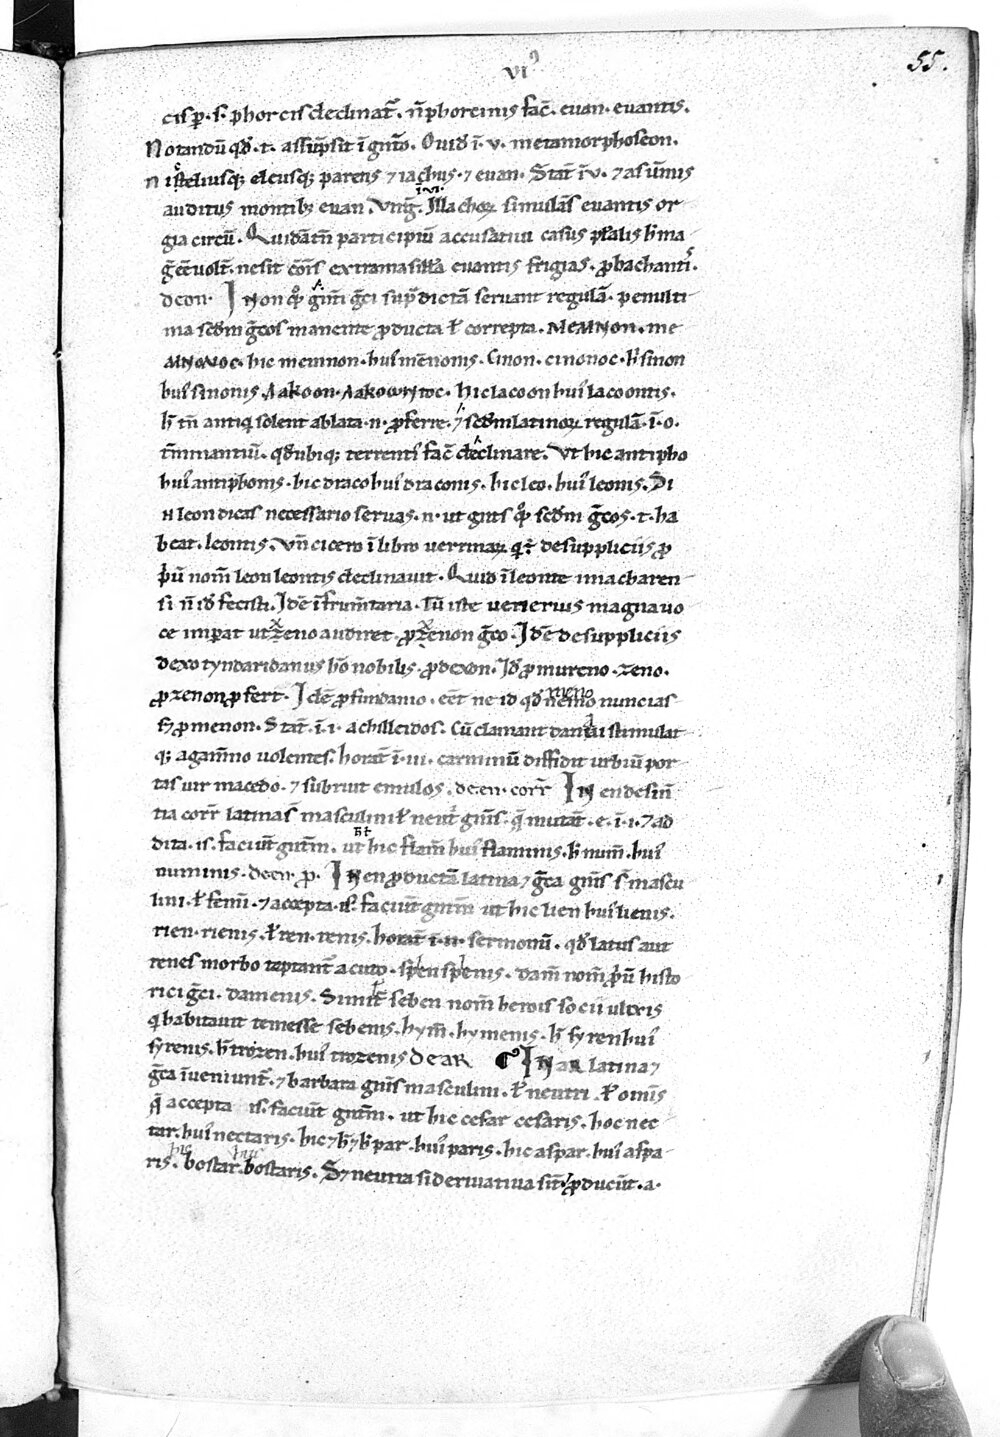 55.
VI
cis p̱. s. phorcis declinat̃. ñ phorcinis fac̃. euan. euantis.
Notandũ qđ. t. assũpsit ĩ gñto. Ouid ĩ. v. metamorphoseon.
nisteliusq; eleusq; parens ⁊ iachus. ⁊ euan. Stat̃ ĩ v. ⁊ asũmis
auditus montib; euan. Virg̃. ĩ vi. Illa choꝝ simulãs euantis or
gia circũ. Quidã tñ participiũ accusatiui casus pl̃alis h̃ ma
g̃ ẽẽ uolt̃. ne sit cõis extrema sill̃a euantis frigias. ꝓ bachanti.
de on. IN on qͦꝫ gñti g̃ci sup̃dictã seruant regulã. penulti
ma scđm g̃cos manente ꝓducta ł correpta. MEMNON. ME
MNONOC. hic memnon. huiꝰ mẽnonis. CINON. CINONOC. h̃ sinon
huiꝰ sinonis. ΛAKOON. ΛAKOωNTOC. hic lacoon huiꝰ lacoontis.
h̃ tñ antiqͥ solent ablata. n. ꝓferre. ⁊ scđm latinoꝝ regulã. ĩ. o.
t̃minantiũ. qđ ubiq; terrentiꝰ fac̃ declinare. Vt hic antipho
huiꝰ antiphonis. hic draco huiꝰ draconis. hic leo. huiꝰ leonis. Si
N leon dicas necessario seruas. n. ut gñts qͦꝫ scđm g̃cos. t. ha
beat. leontis. Vñ cicero ĩ libro uerrinaꝝ qͥ ẽ de suppliciis ꝓ
pͥũ nom̃ leon leontis declinauit. Quid ĩ leonte imacharen
si ñ iđ fecisti. Idẽ ĩ frum̃taria. Tũ iste uenerius magna uo
ce imp̱at ut zeno audiret. ꝓ zenon g̃co. Idẽ de suppliciis
dexo tyndaridanus hõ nobilis. ꝓ dexon. Iđ ꝓ mureno. zeno.
ꝓ zenon ꝓfert. Idẽ ꝓ fundanio. ecc̃ ne id qđ meno nemo nuncias
s; ꝓ menon. Stat̃. ĩ. i. achilleidos. Cũ clamant danai stimulat
q; agam̃no uolentes. horat̃ ĩ. iii. carminũ diffidit urbiũ por
tas uir macedo. ⁊ subruit emulos. de en. corr̃ IN en desiñ
tia corr̃ latinas̃ masculini ł neut̃ gñis. q̃ mutãt. e. ĩ. i. ⁊ ad
dita. is. faciũt gñtm. ut hic flam̃ huiꝰ flaminis. h̃ num̃. huiꝰ
numinis. de en. ꝓ. IN en ꝓductã latina ⁊ g̃ca gñis s̃ mascu
lini. ł femĩ. ⁊ accepta. is. faciũt gñtm ut hic lien huiꝰ lienis.
rien. rienis. ł ren. renis. horat̃ ĩ. ii. sermonũ. qđ latus aut
renes morbo teptant̃ acuto. splen splenis. dam̃ nom̃ pͥũ histo
rici g̃ci. damenis. Similit̃ seben nom̃ herois socii ulixis
q̃ habitauit temesse sebenis. hym̃. hymenis. h̃ syren huiꝰ
syrenis. h̃ trozen. huiꝰ trozenis DE AR IN AR latina ⁊
g̃ca ĩueniunt̃. ⁊ barbara gñis masculini. ł neutri. ł om̃is
q̃ accepta is. faciũt gñtm. ut hic cesar cesaris. hoc nec
tar. huiꝰ nectaris. hic ⁊ h̃ ⁊ h̃ par. huiꝰ paris. hic aspar. huiꝰ aspa
ris. hic bostar. huiꝰ bostaris. S; neutra si deriuatiua sũt ꝓducũt. a.